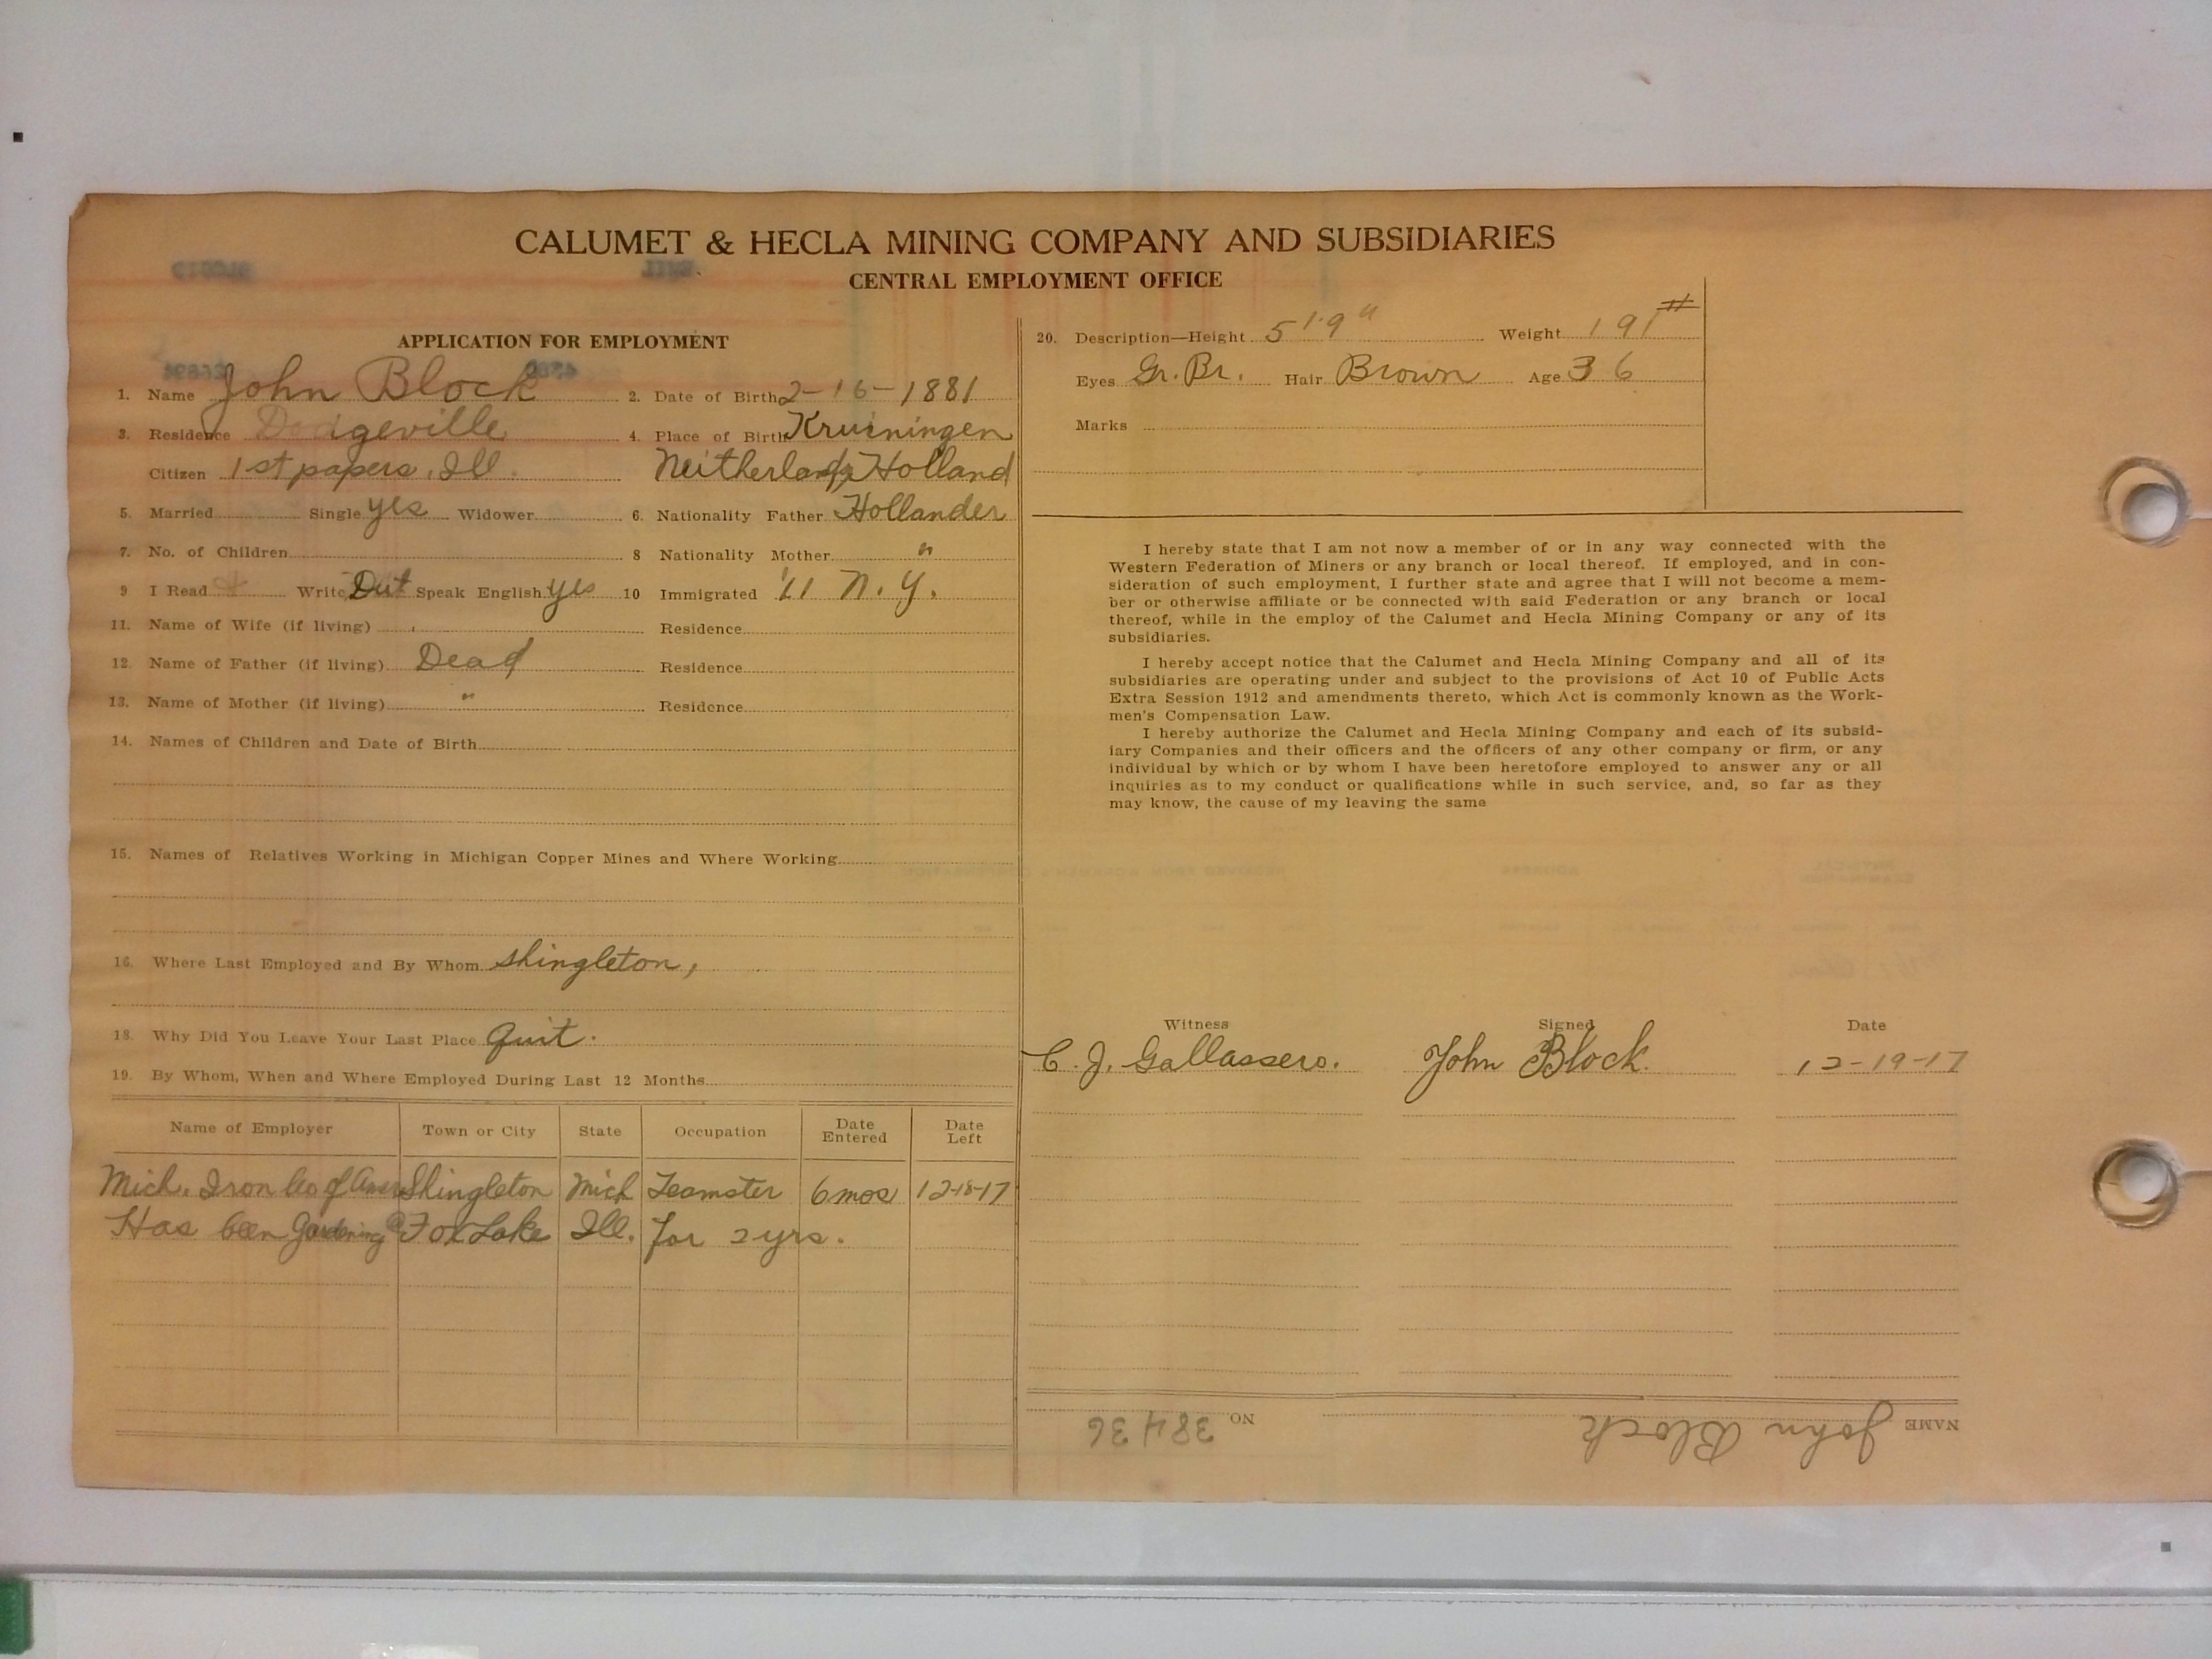 CALUMET & HECLA MINING COMPANY AND SUBSIDIARIES
CENTRAL EMPLOYMENT OFFICE
APPLICATION FOR EMPLOYMENT
1. Name John Block 2. Date of Birth 2-16-1881
3. Residence Dodgeville 4. Place of Birth Kruiningen
Citizen 1st papers, Ill. Neitherlands Holland
5. Married Single yes Widower 6. Nationality Father Hollander
7. No. of Children 8 Nationality Mother "
9 I Read & Write Dut Speak English yes 10 Immigrated '11 N. Y.
11. Name of Wife (if living) Residence
12. Name of Father (if living) Dead Residence
13. Name of Mother (if living) " Residence
14. Names of Children and Date of Birth
15. Names of Relatives Working in Michigan Copper Mines and Where Working
16. Where Last Employed and By Whom Shingleton,
18. Why Did You Leave Your Last Place Quit.
19. By Whom, When and Where Employed During Last 12 Months
Name of Employer Town or City State Occupation Date Entered Date Left
Mich. Iron Co of Amer Shingleton Mich Teamster 6 mos 12-18-17
Has been Gardening @ Fox Lake Ill. for 2 yrs.
20. Description—Height 5'.9" Weight 191#
Eyes Gr. Br. Hair Brown Age 36
Marks
I hereby state that I am not now a member of or in any way connected with the
Western Federation of Miners or any branch or local thereof. If employed, and in con-
sideration of such employment, I further state and agree that I will not become a mem-
ber or otherwise affiliate or be connected with said Federation or any branch or local
thereof, while in the employ of the Calumet and Hecla Mining Company or any of its
subsidiaries.
I hereby accept notice that the Calumet and Hecla Mining Company and all of its
subsidiaries are operating under and subject to the provisions of Act 10 of Public Acts
Extra Session 1912 and amendments thereto, which Act is commonly known as the Work-
men's Compensation Law.
I hereby authorize the Calumet and Hecla Mining Company and each of its subsid-
iary Companies and their officers and the officers of any other company or firm, or any
individual by which or by whom I have been heretofore employed to answer any or all
inquiries as to my conduct or qualifications while in such service, and, so far as they
may know, the cause of my leaving the same
Witness Signed Date
C. J. Gallassero. John Block. 12-19-17
NAME John Block NO 38436